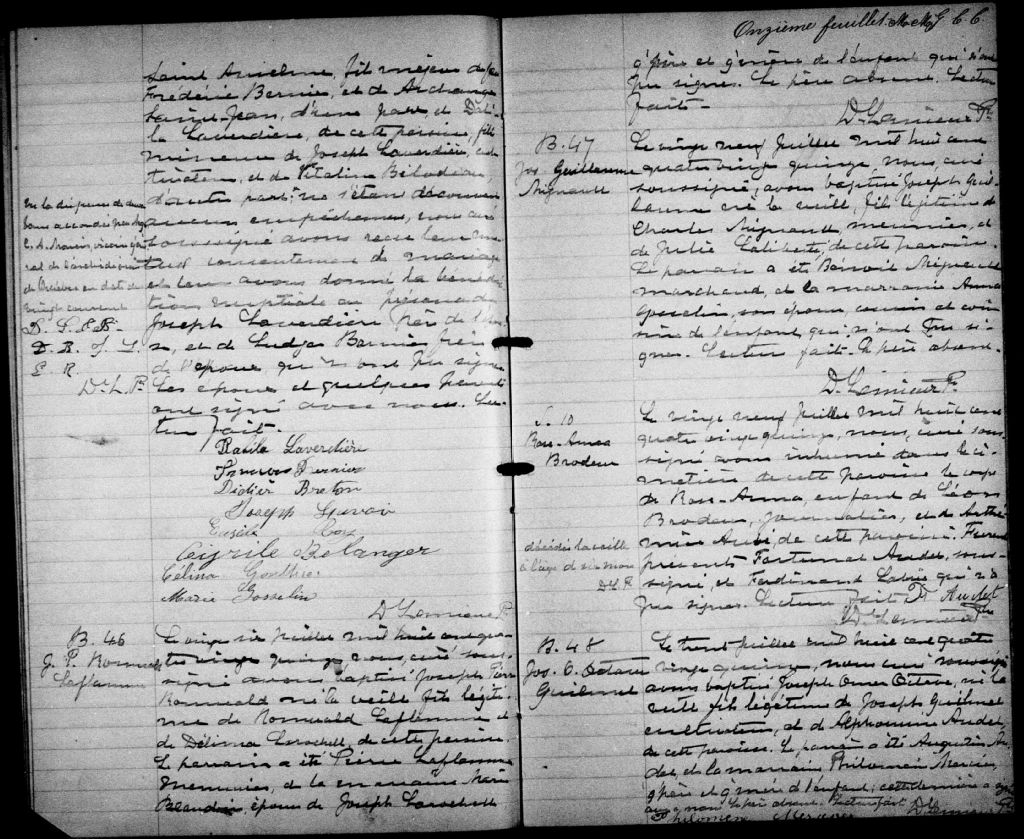 Saint Anselme, fils majeur de feu
Frédéric Bernier, et de Archange
Saint-Jean, d'une part, et Dali-
la Laverdière, de cette paroisse, fille
mineure de Joseph Laverdière, cul-
tivateur, et de Vitaline Bilodeau
d'autre part; ne s'étant découvert
aucun empêchement, nous curé
soussigné avons reçu leur mu-
tuel consentement de mariage
et leur avons donné la bénédic-
tion nuptiale en présence de
Joseph Laverdière père de l'épou-
se, et de Ludger Bernier frère
de l'époux qui n'ont pu signer
Les époux et quelques parents
ont signé avec nous. Lec-
ture faite.
Vu la dispense de deux
bans accordée par
C. A. Marois, vicaire géné
ral de l'archidiocèse
de Québec en date du
vingt courant
D. L. E. B.
D. B. of L.
E. R.
D. L. Ptre
Dalila Laverdière
Bernier
Didier Breton
Joseph
Roy
Cyrile Belanger
Célina Gouthier
Marie Gosselin
D Lemieux Ptre
B. 46
J. P. Romuald
Laflamme
Le vingt six juillet mil huit cent qua-
tre vingt quinze, nous, curé sous-
signé avons baptisé Joseph Pierre
Romuald né la veille fils légiti-
me de Romuald Laflamme et
de Délima Larochelle de cette paroisse.
Le parrain a été Pierre Laflamme
menuisier, et la marraine Marie
Beaudoin, épouse de Joseph Larochelle
Onzième feuillet. M. M. G. C. C.
g'père et g'mère de l'enfant qui n'ont
pu signer. Le père absent. Lecture
faite.
D. Lemieux Ptre
B. 47
Jos Guillaume
Mignault
Le vingt neuf juillet mil huit cent
quatre vingt quinze, nous, curé
soussigné, avons baptisé Joseph Guil-
laume né la veille, fils légitime de
Charles Mignault, meunier, et
de Julie Laliberté, de cette paroisse.
Le parrain a été Bénoit Mignault
marchand, et la marraine Anna
Gosselin, son épouse, cousin et cousi-
ne de l'enfant qui n'ont pu si-
gner. Lecture faite. Le père absent.
D. Lemieux Ptre
S. 10
Rose-Anna
Brodeur
décédée la veille
à l'âge de six mois
D. L. P.
Le vingt neuf juillet mil huit cent
quatre vingt quinze, nous, curé sous-
signé avons inhumé dans le ci-
metière de cette paroisse le corps
de Rose-Anna, enfant de Léon
Brodeur, journalier, et de Arthé-
mise de cette paroisse. Furent
présents Fortunat Audet, sous-
signé, et Ferdinand qui n'a
pu signer. Lecture faite F. Audet
D. Lemieux Ptre
B. 48
Jos. O. Octave
Guilmet
Le trente juillet mil huit cent quatre
vingt quinze, nous curé soussigné
avons baptisé Joseph Omer Octave, né la
veille fils légitime de Joseph Guilmet
cultivateur, et de Alphonsine Audet
de cette paroisse. Le parrain a été Augustin Au-
det, et la marraine Philomène Mercier,
g'père et g'mère de l'enfant; cette dernière a signé
avec nous. Le père absent. Lecture faite
Philomène Mercier D Lemieux Ptre